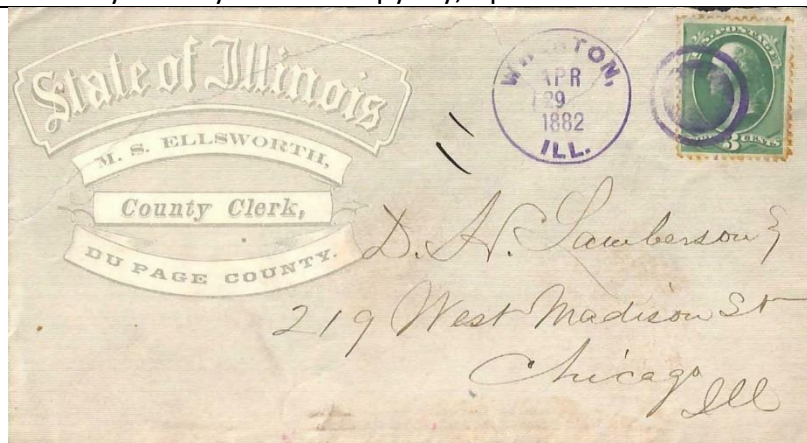 State of Illinois
M. S. ELLSWORTH,
County Clerk,
DU PAGE COUNTY.
WHEATON,
APR
29
1882
ILL.
U.S. POSTAGE
3 CENTS
D. H. Lamberson
219 West Madison St
Chicago
Ill